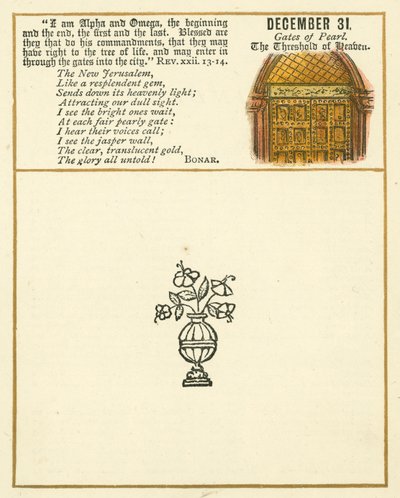 "I am Alpha and Omega, the beginning
and the end, the first and the last. Blessed are
they that do his commandments, that they may
have right to the tree of life, and may enter in
through the gates into the city." REV. xxii. 13-14.
The New Jerusalem,
Like a resplendent gem,
Sends down its heavenly light;
Attracting our dull sight.
I see the bright ones wait,
At each fair pearly gate:
I hear their voices call;
I see the jasper wall,
The clear, translucent gold,
The glory all untold! BONAR.
DECEMBER 31.
Gates of Pearl.
The Threshold of Heaven.